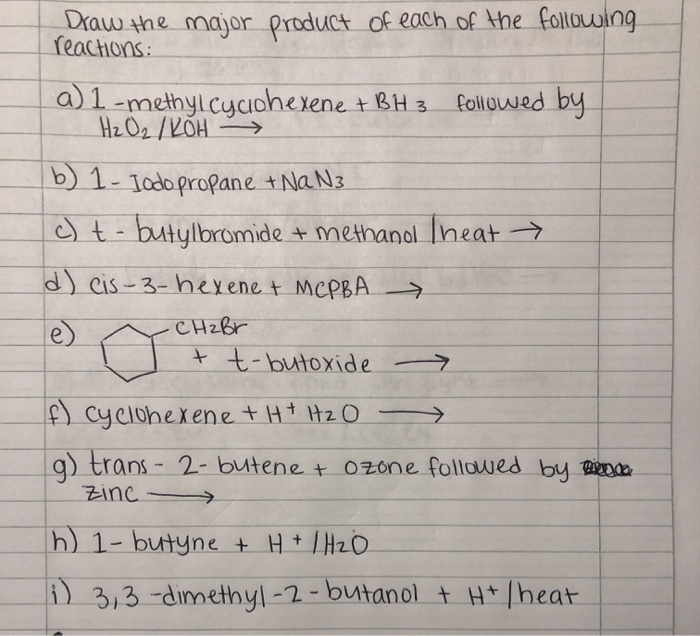 Draw the major product of each of the following
reactions:
a) 1-methylcyclohexene + BH3 followed by
H2O2/KOH →
b) 1-Iodopropane + NaN3
c) t-butylbromide + methanol /heat →
d) cis-3-hexene + MCPBA →
e) CH2Br
+ t-butoxide →
f) cyclohexene + H+ H2O →
g) trans-2-butene + ozone followed by
zinc →
h) 1-butyne + H+/H2O
i) 3,3-dimethyl-2-butanol + H+/heat